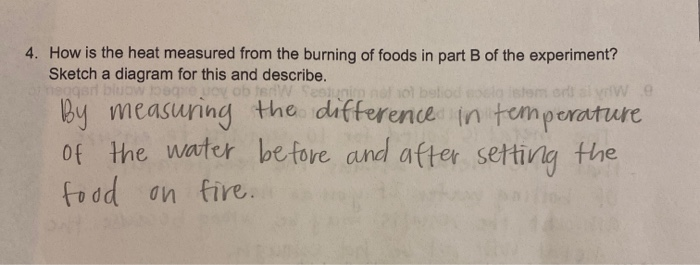 4. How is the heat measured from the burning of foods in part B of the experiment?
Sketch a diagram for this and describe.
By measuring the difference in temperature
of the water before and after setting the
food on fire.